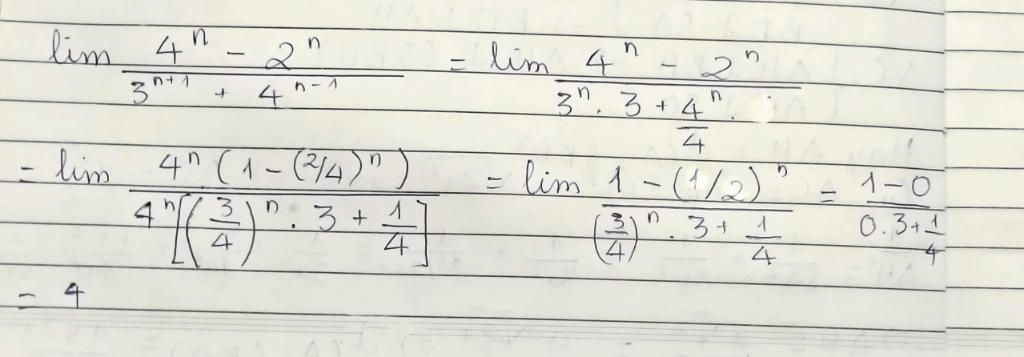 lim (4^n - 2^n)/(3^(n+1) + 4^(n-1)) = lim (4^n - 2^n)/(3^n . 3 + 4^n/4 .)
= lim (4^n (1 - (2/4)^n))/(4^n [(3/4)^n . 3 + 1/4]) = lim (1 - (1/2)^n)/((3/4)^n . 3 + 1/4) = (1 - 0)/(0.3 + 1/4)
= 4